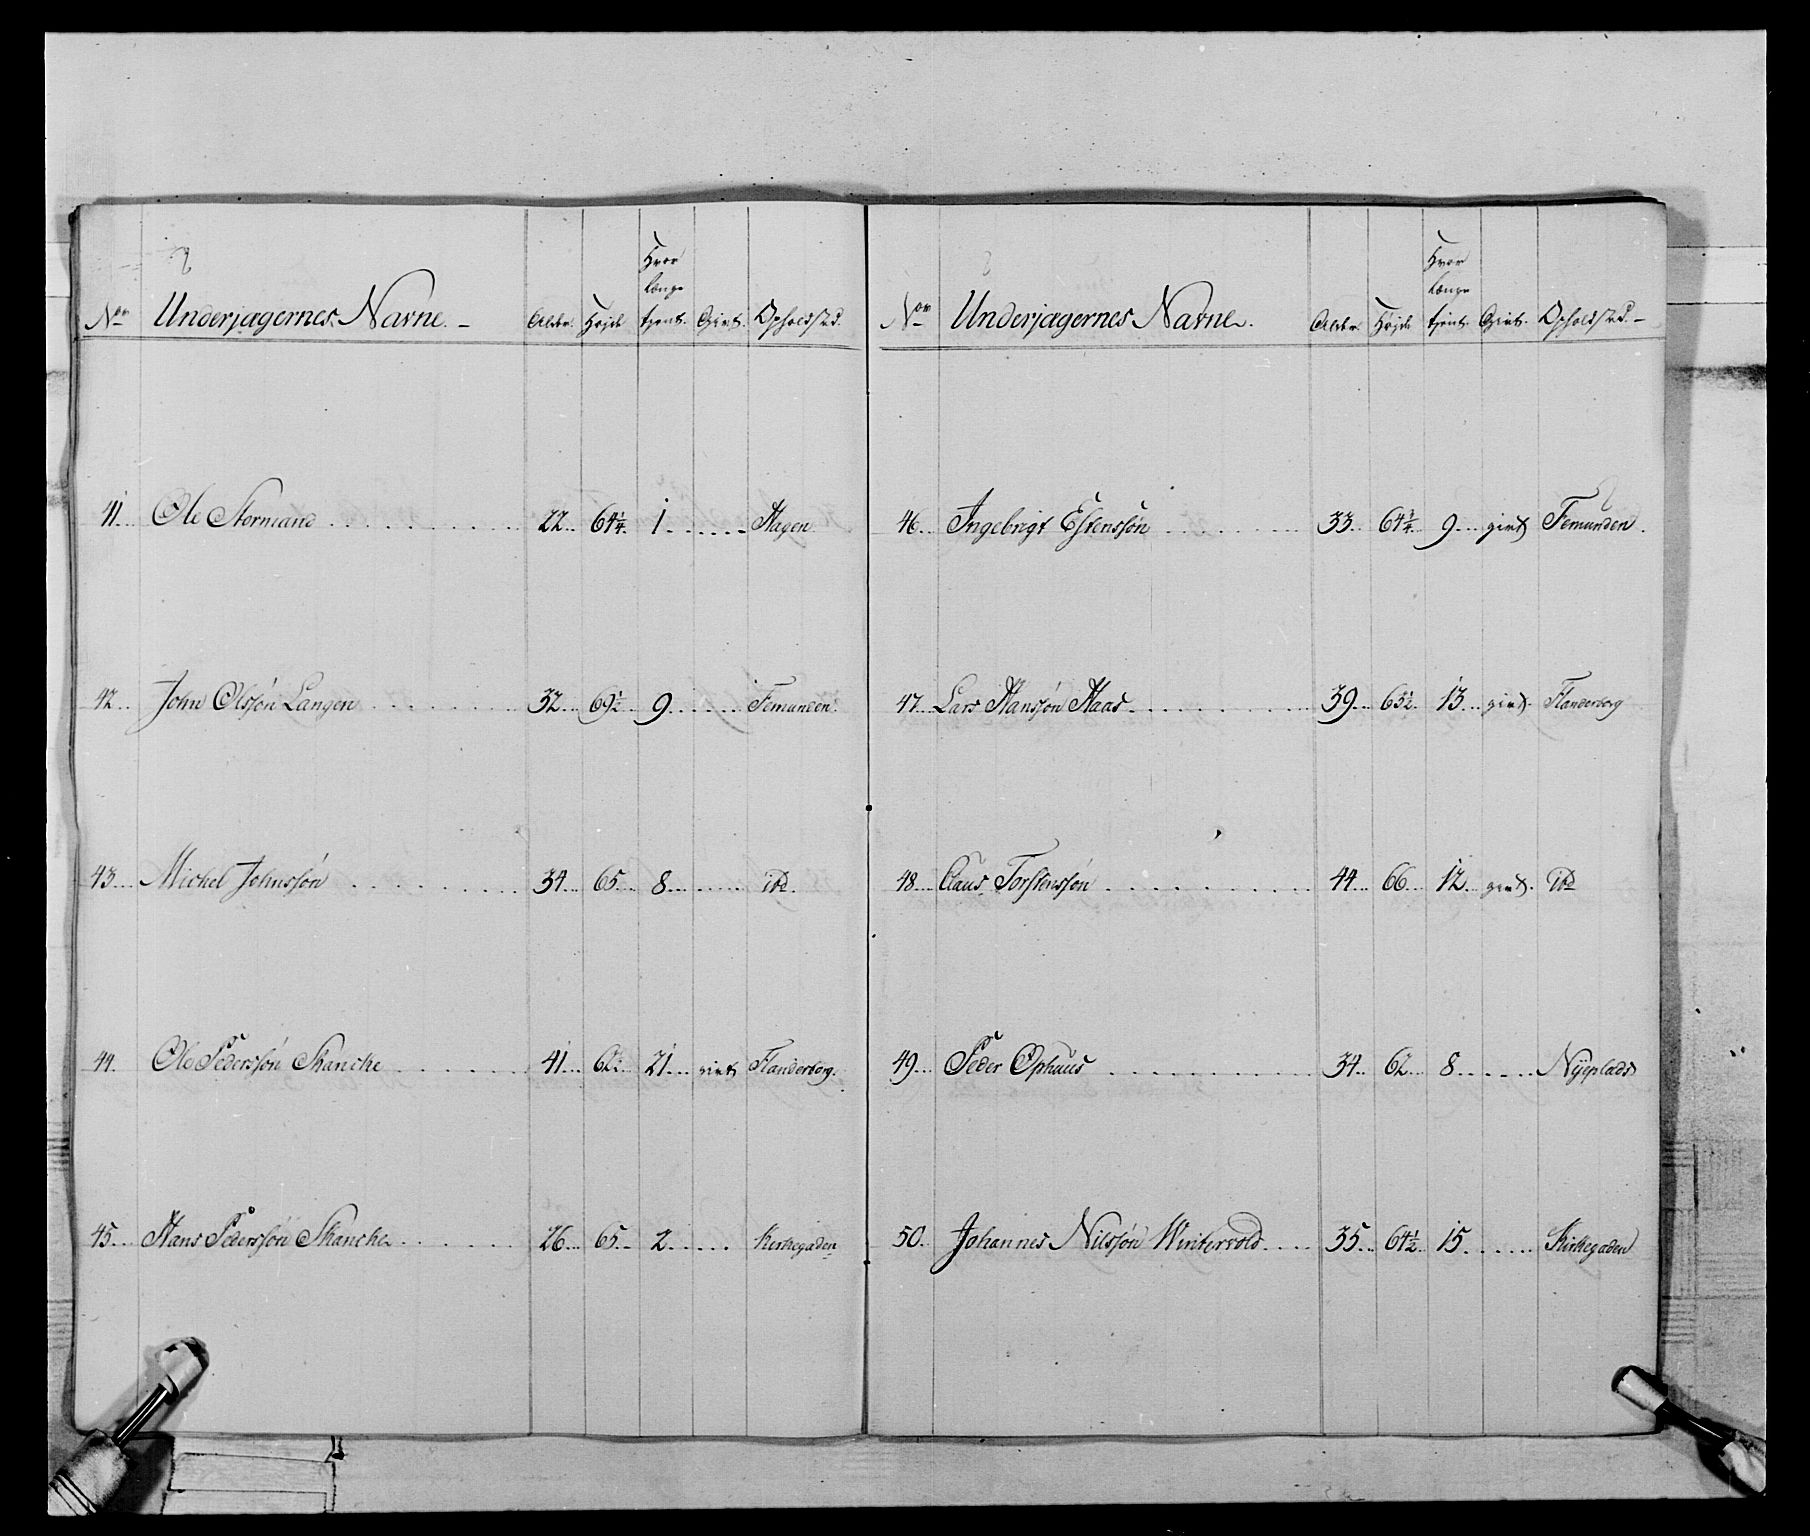 Hvor
længe
No Underjægernes Navne. Alder. Højde tjent. Givt. Opholdsted.
41. Ole Stormand 22 64¼ 1 Hagen
42. John Olssøn Langen 32 69½ 9 Femunden
43. Michel Johnssøn 34 65 8 ibd
44. Ole Pederssøn Skancke 41 62½ 21 givt Flanderborg.
45. Hans Pederssøn Skancke 26 65 2 Kirkegaden
Hvor
længe
No Underjægernes Navne. Alder. Højde tjent. Givt. Opholdsted.
46. Ingebrigt Estenssøn 33 64 9 givt Femunden.
47. Lars Hanssøn Haas 39 63½ 13 givt. Flanderborg
48. Claus Torstenssøn 44 66 12 givt. ibd
49. Peder Ophuus 34 62 8 Nyeplads
50. Johannes Nilssøn Wintervold 35 64½ 15 Kirkegaden